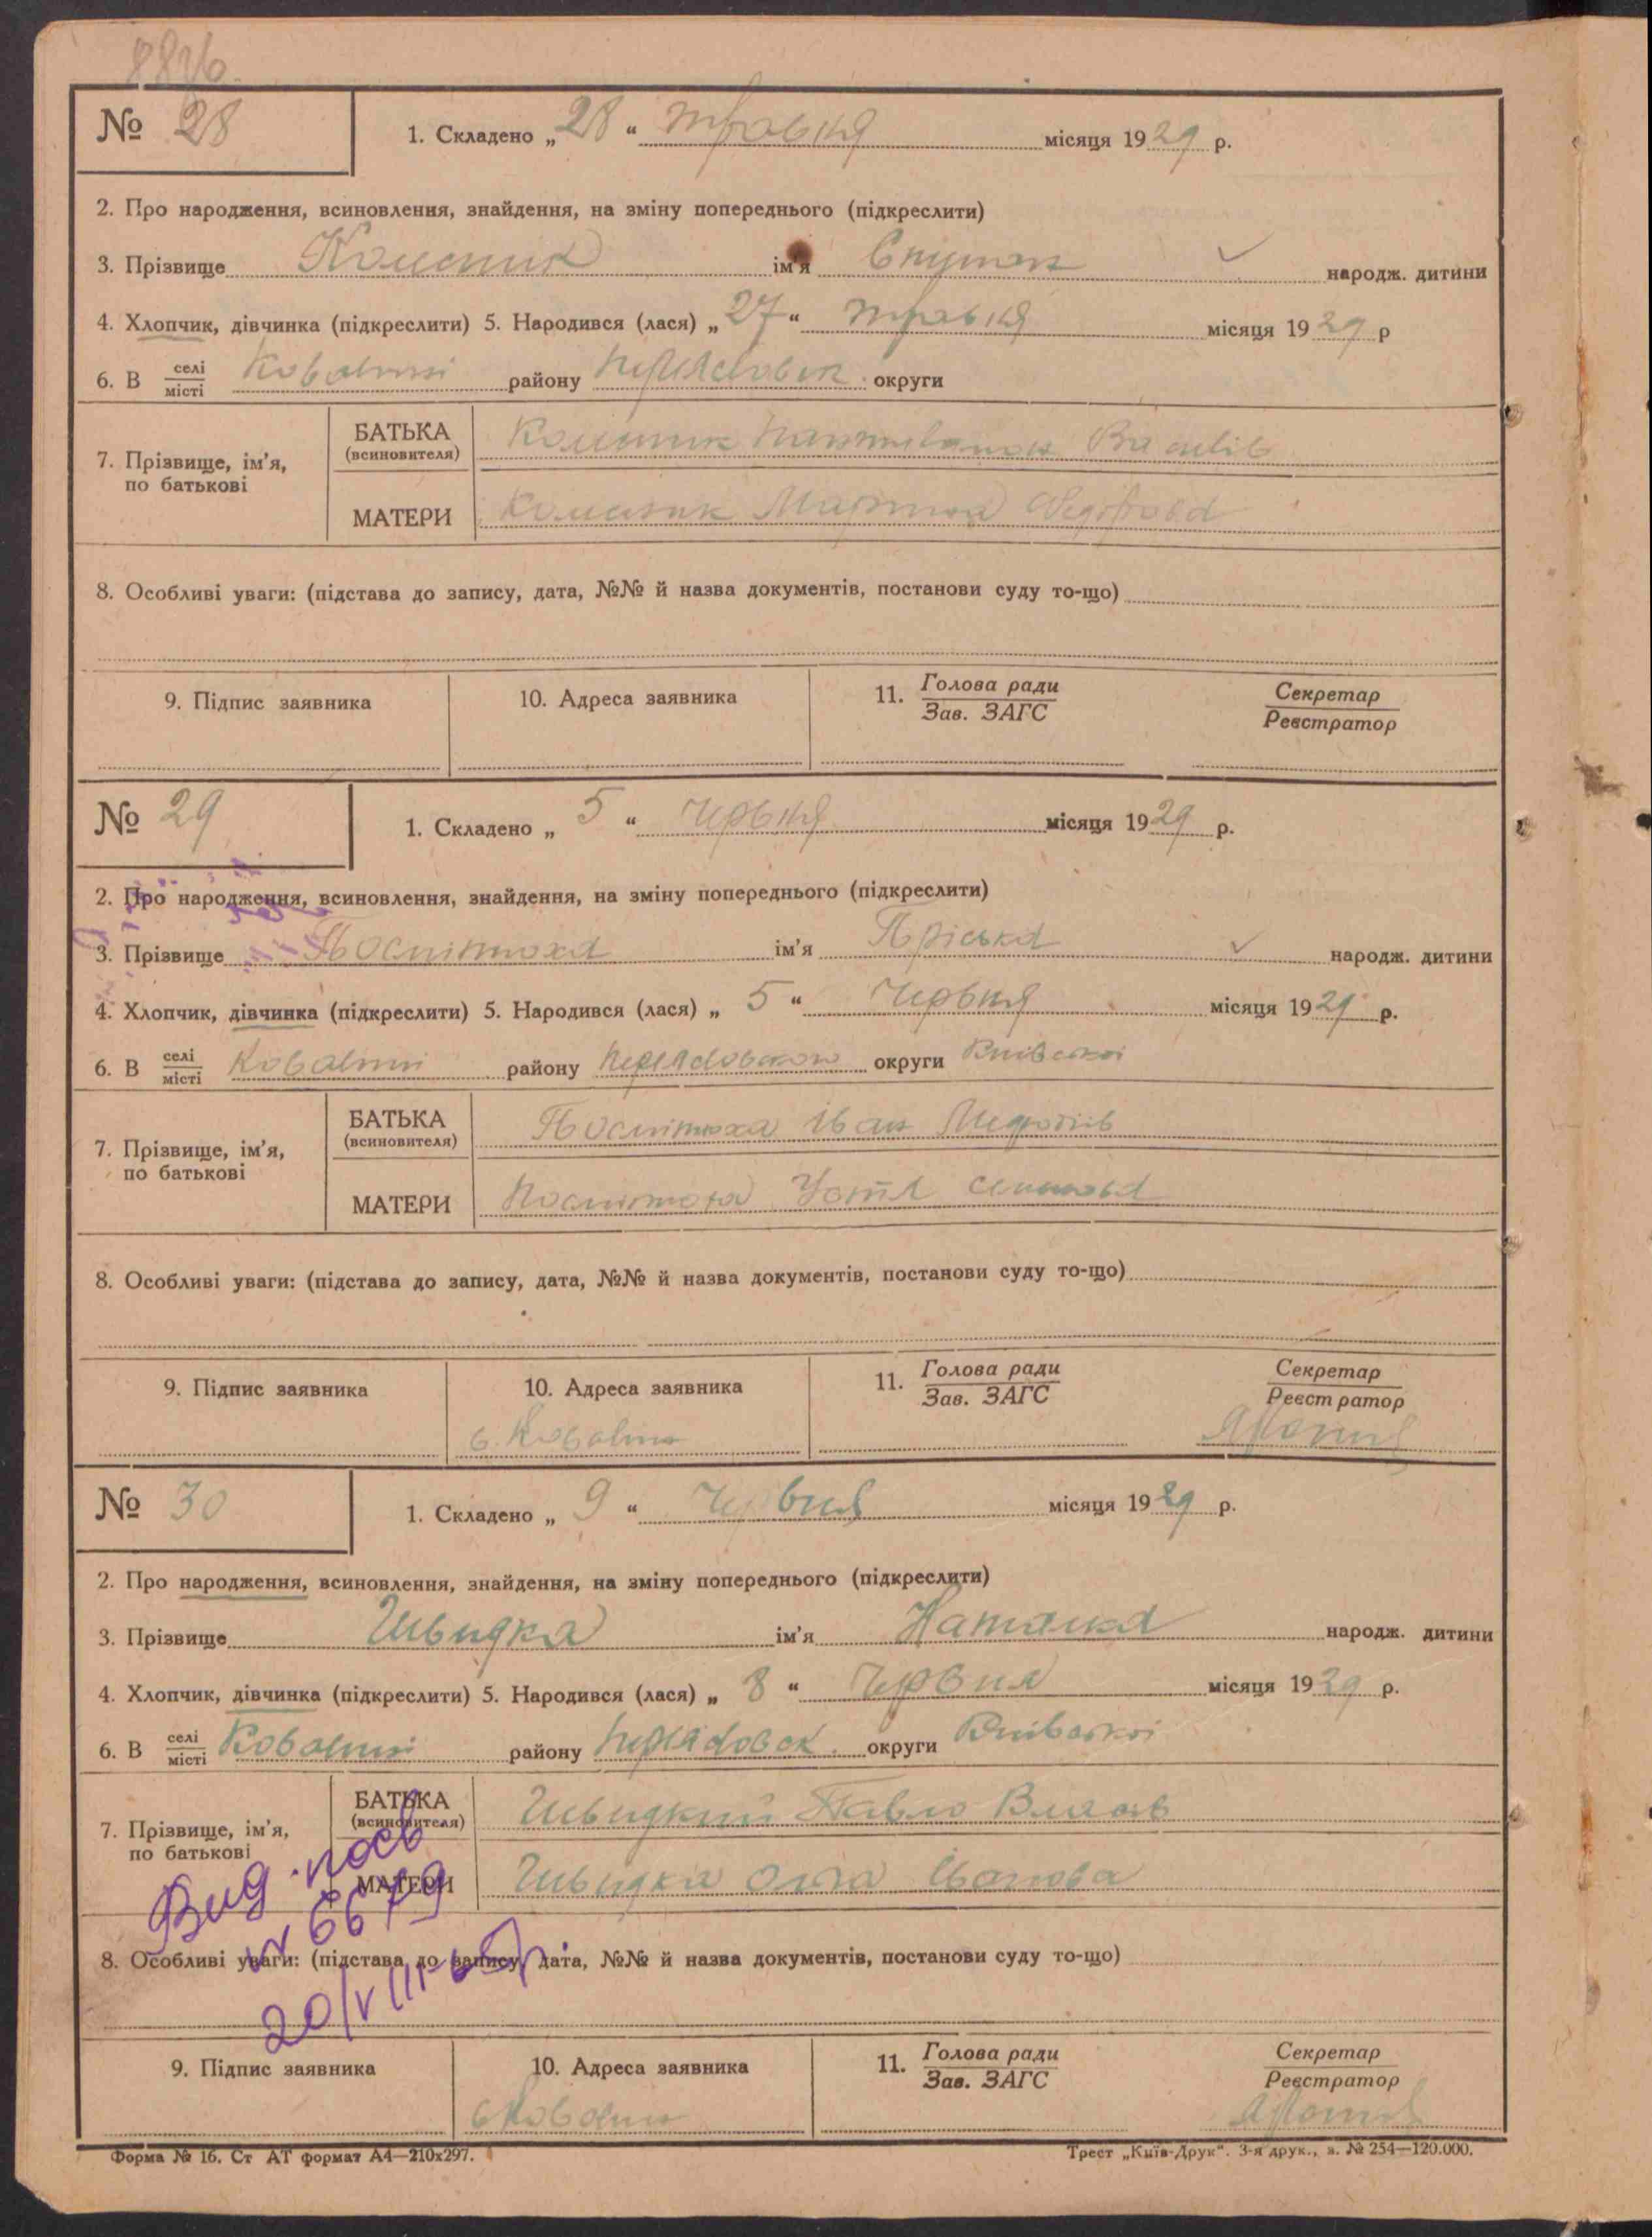 № 28
1. Складено „28“ травня місяця 1929 р.
2. Про народження, всиновлення, знайдення, на зміну попереднього (підкреслити)
3. Прізвище ім'я народж. дитини
4. Хлопчик, дівчинка (підкреслити) 5. Народився (лася) „27“ травня місяця 1929 р
6. В селі/місті Ковалині району Переяславськ. округи
7. Прізвище, ім'я, по батькові
БАТЬКА (всиновителя)
МАТЕРИ
8. Особливі уваги: (підстава до запису, дата, №№ й назва документів, постанови суду то-що)
9. Підпис заявника
10. Адреса заявника
11. Голова ради/Зав. ЗАГС
Секретар/Реєстратор
№ 29
1. Складено „5“ червня місяця 1929 р.
2. Про народження, всиновлення, знайдення, на зміну попереднього (підкреслити)
3. Прізвище Послітюха ім'я Пріська народж. дитини
4. Хлопчик, дівчинка (підкреслити) 5. Народився (лася) „5“ Червня місяця 1929 р.
6. В селі/місті Ковалині району округи Київської
7. Прізвище, ім'я, по батькові
БАТЬКА (всиновителя) Послітюха Іван
МАТЕРИ Послітюха Устя
8. Особливі уваги: (підстава до запису, дата, №№ й назва документів, постанови суду то-що)
9. Підпис заявника
10. Адреса заявника
с. Ковалин
11. Голова ради/Зав. ЗАГС
Секретар/Реєстратор
№ 30
1. Складено „9“ Червня місяця 1929 р.
2. Про народження, всиновлення, знайдення, на зміну попереднього (підкреслити)
3. Прізвище Швидка ім'я Наталка народж. дитини
4. Хлопчик, дівчинка (підкреслити) 5. Народився (лася) „8“ Червня місяця 1929 р.
6. В селі/місті Ковалині району округи Київської
7. Прізвище, ім'я, по батькові
БАТЬКА (всиновителя) Швидкий Павло Власів
МАТЕРИ Швидка Олга Іванова
Вид. посв
№ 6679
20/VIII-65р.
8. Особливі уваги: (підстава до запису, дата, №№ й назва документів, постанови суду то-що)
9. Підпис заявника
10. Адреса заявника
с Ковалин
11. Голова ради/Зав. ЗАГС
Секретар/Реєстратор
Форма № 16. Ст АТ формат А4—210х297.
Трест „Київ-Друк“. 3-я друк., з. № 254—120.000.